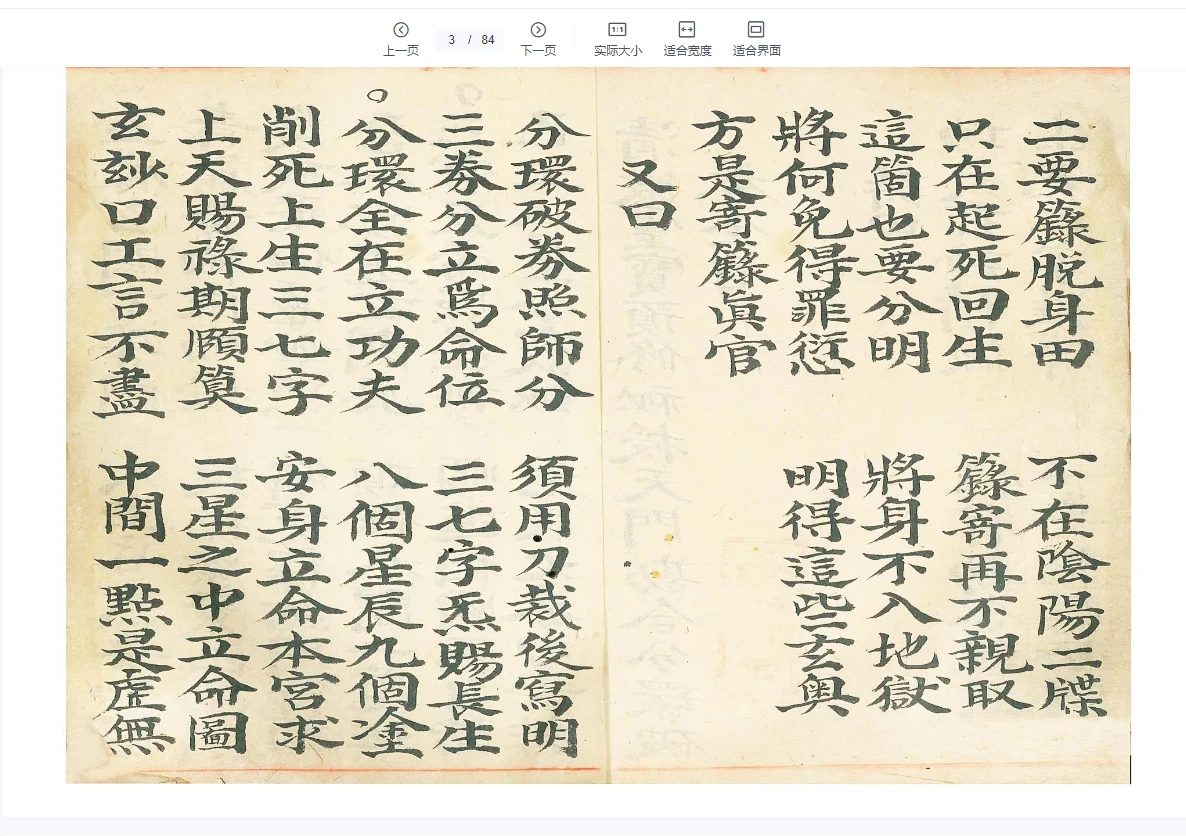 上一页
3 / 84
下一页
1:1
实际大小
适合宽度
适合界面
二要籙脫身田 不在陰陽二牒
只在起死回生 籙寄再不親取
這箇也要分明 將身不入地獄
將何免得罪愆 明得這些玄奥
方是寄籙眞官
又曰
分環破券照師分 須用刀裁後寫明
三券分立爲命位 三七字炁賜長生
分環全在立功夫 八個星辰九個塗
削死上生三七字 安身立命本宮求
上天賜祿期願筭 三星之中立命圖
玄玅口工言不盡 中間一點是虚無